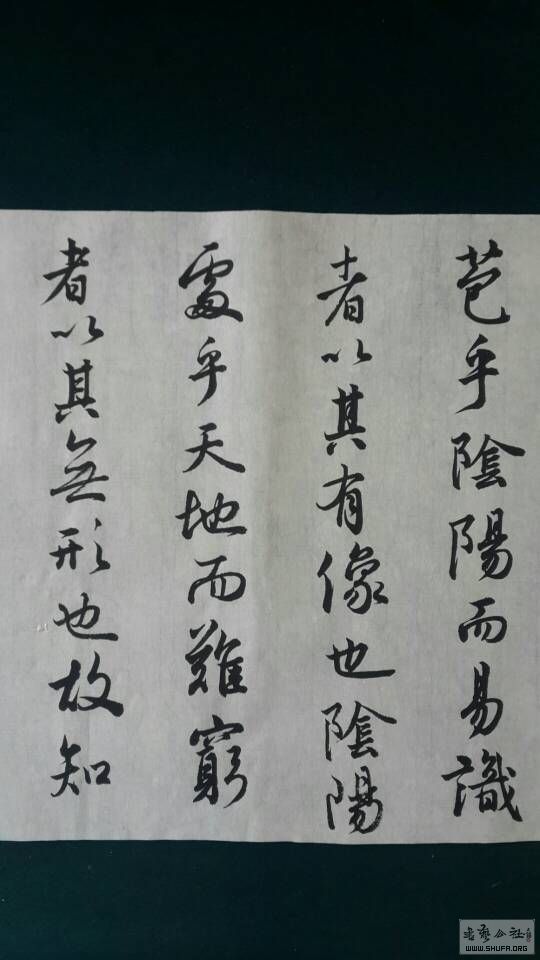 苞乎陰陽而易識
者以其有像也陰陽
處乎天地而難窮
者以其無形也故知
書法公社
WWW.SHUFA.ORG